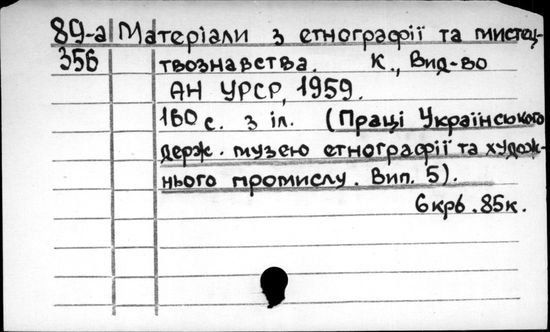 89-а Матеріали з етнографії та мистец-
356 твознавства. К., Вид-во
АН УРСР, 1959.
160 с. з іл. (Праці Українського
держ. музею етнографії та худож-
нього промислу. Вип. 5).
6 крб. 85 к.